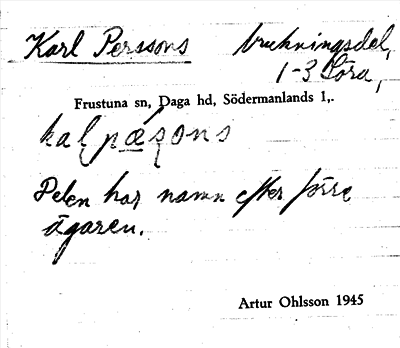 Karl Perssons brukningsdel,
1-3 Löra,
Frustuna sn, Daga hd, Södermanlands l,.
kaḷ pæ̱ʂons
Delen har namn efter förre
ägaren.
Artur Ohlsson 1945